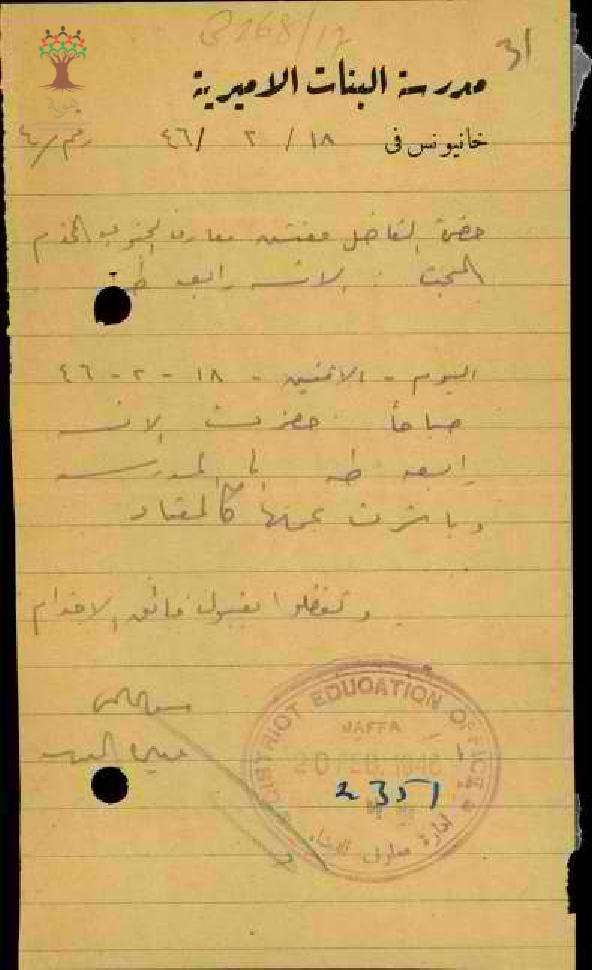 31
هوية
مدرسة البنات الاميرية
خانيونس في ١٨ / ٢ / ٤٦
حضرة الفاضل مفتش معارف الجنوب المحترم
المبحث : الانسه رابعه طه
اليوم - الاثنين - ١٨ - ٢ - ٤٦
صباحاً حضرت الانسه
رابعه طه الى المدرسه
وباشرت عملها كالمعتاد
وتفضلوا بقبول فائق الاحترام
DISTRICT EDUCATION OFFICE
JAFFA
20 FEB 1946
2351
ادارة معارف اللواء